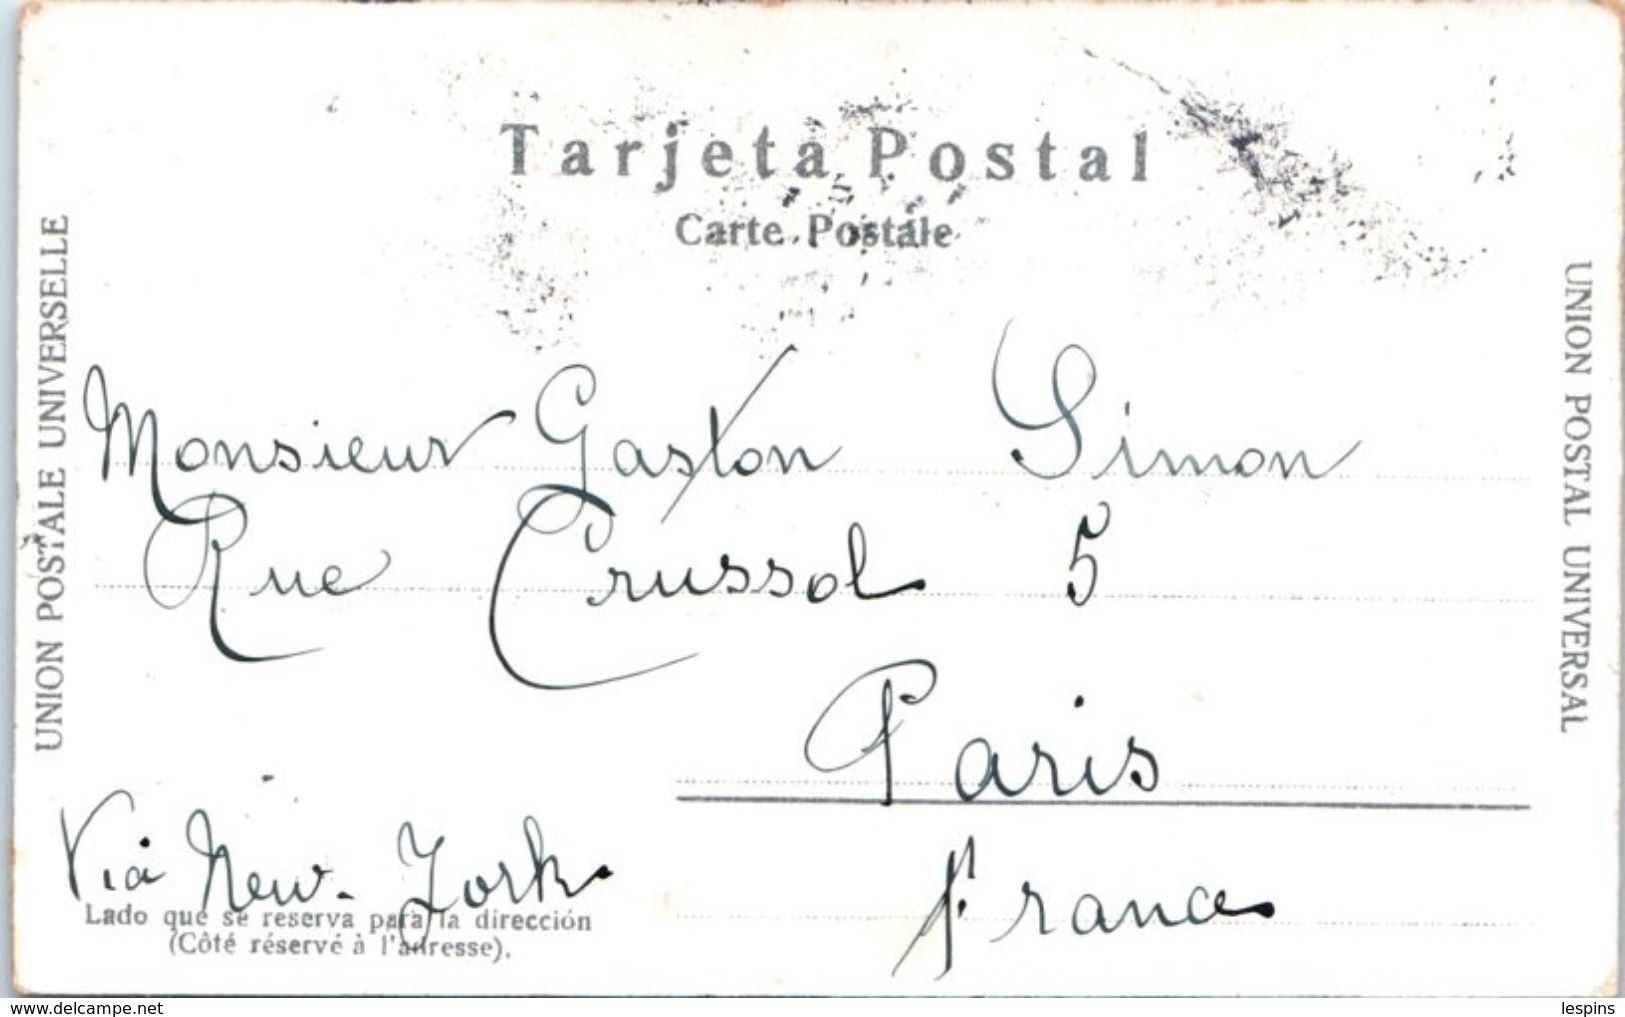 Tarjeta Postal
Carte Postale
UNION POSTALE UNIVERSELLE
UNION POSTAL UNIVERSAL
Monsieur Gaston Simon
Rue Crussol 5
Paris
France
Via New-York
Lado que se reserva para la dirección
(Côté réservé à l'adresse).
delcampe.net
lespins